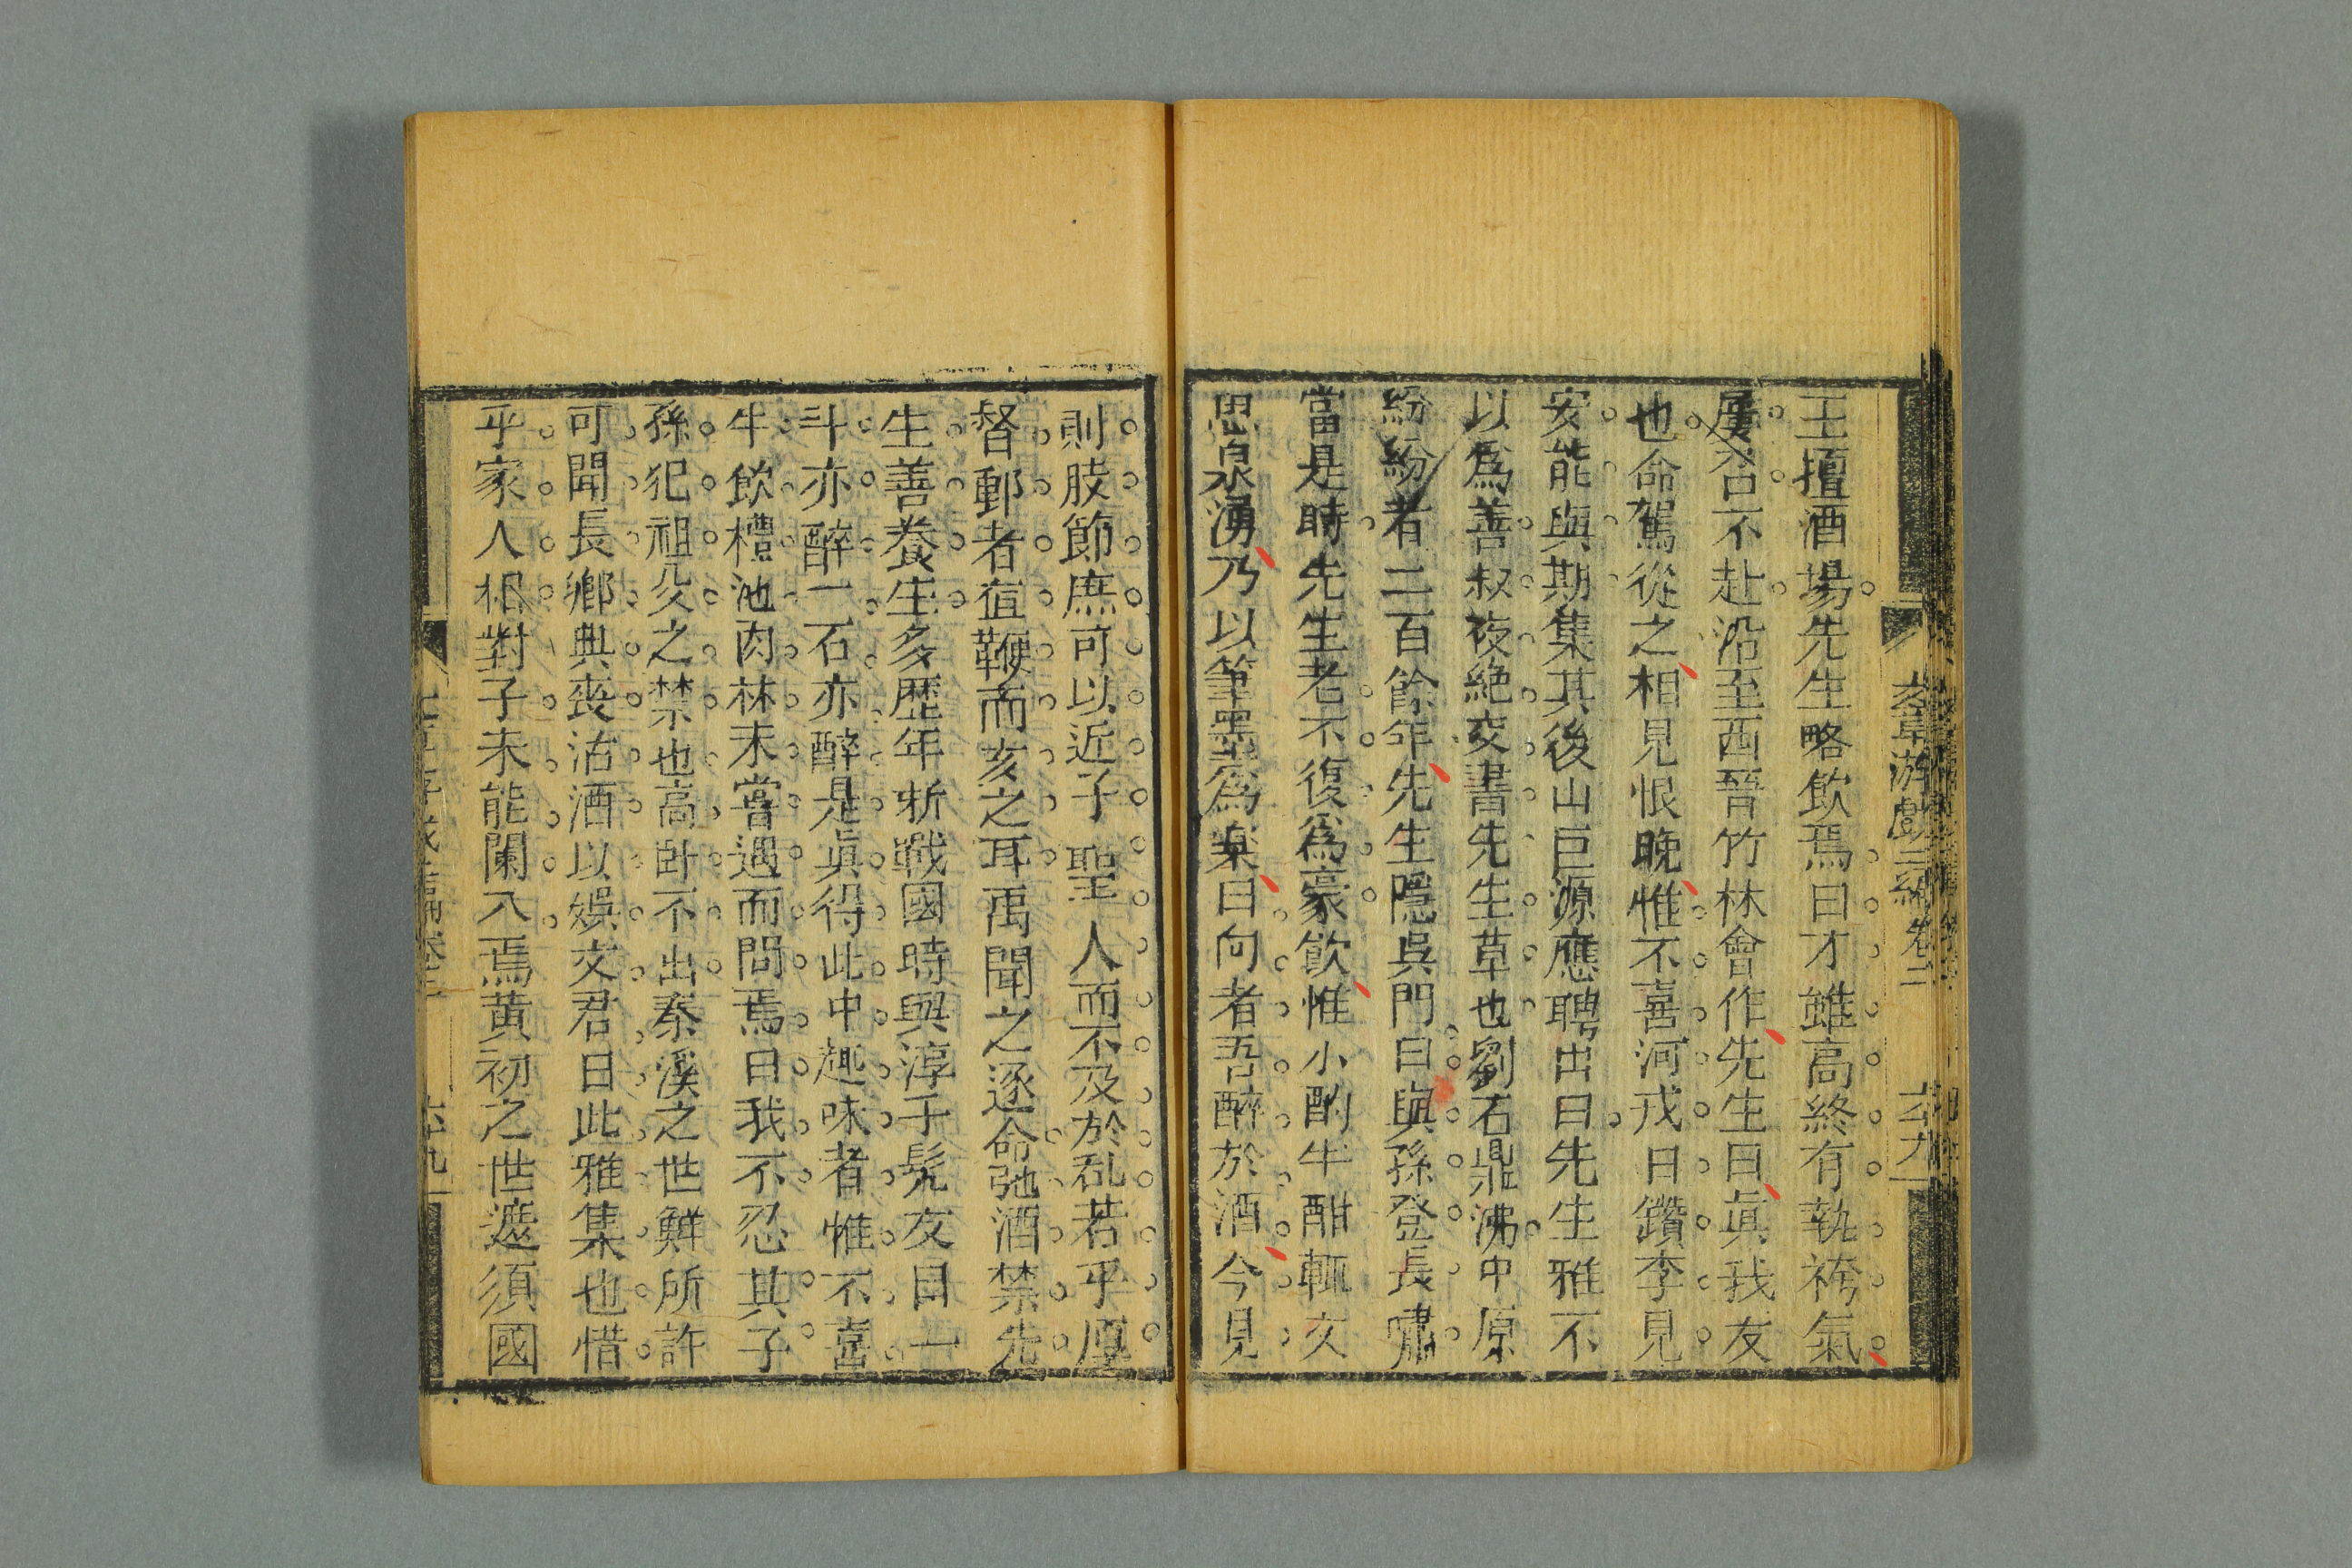 王擅酒場先生略飲焉曰才雖高終有執袴氣
屢召不赴沿至西晉竹林會作先生曰眞我友
也命駕從之相見恨晚惟不喜河戎曰鑽李見
安能與期集其後山巨源應聘出曰先生雅不
以爲善叔夜絶交書先生草也劉石鼎沸中原
紛紛者二百餘年先生隱吳門曰與孫登長嘯
當是時先生老不復爲豪飲惟小酌半酣輒文
思泉湧乃以筆墨爲楽曰向者吾醉於酒今見
則肢節庶可以近子聖人而不及於乱若乎厚
督郵者宜鞭而亥之耳禹聞之逐命弛酒禁先
生善養生多歴年斫戰國時與淳于髡友目一
斗亦醉一石亦醉是眞得此中趣味者惟不喜
牛飲糟池肉林未嘗遇而問焉曰我不忍其子
孫犯祖父之禁也高卧不出秦漢之世鮮所許
可聞長鄉典喪沽酒以娛文君曰此雅集也惜
乎家人相對子未能闌入焉黃初之世遊須國